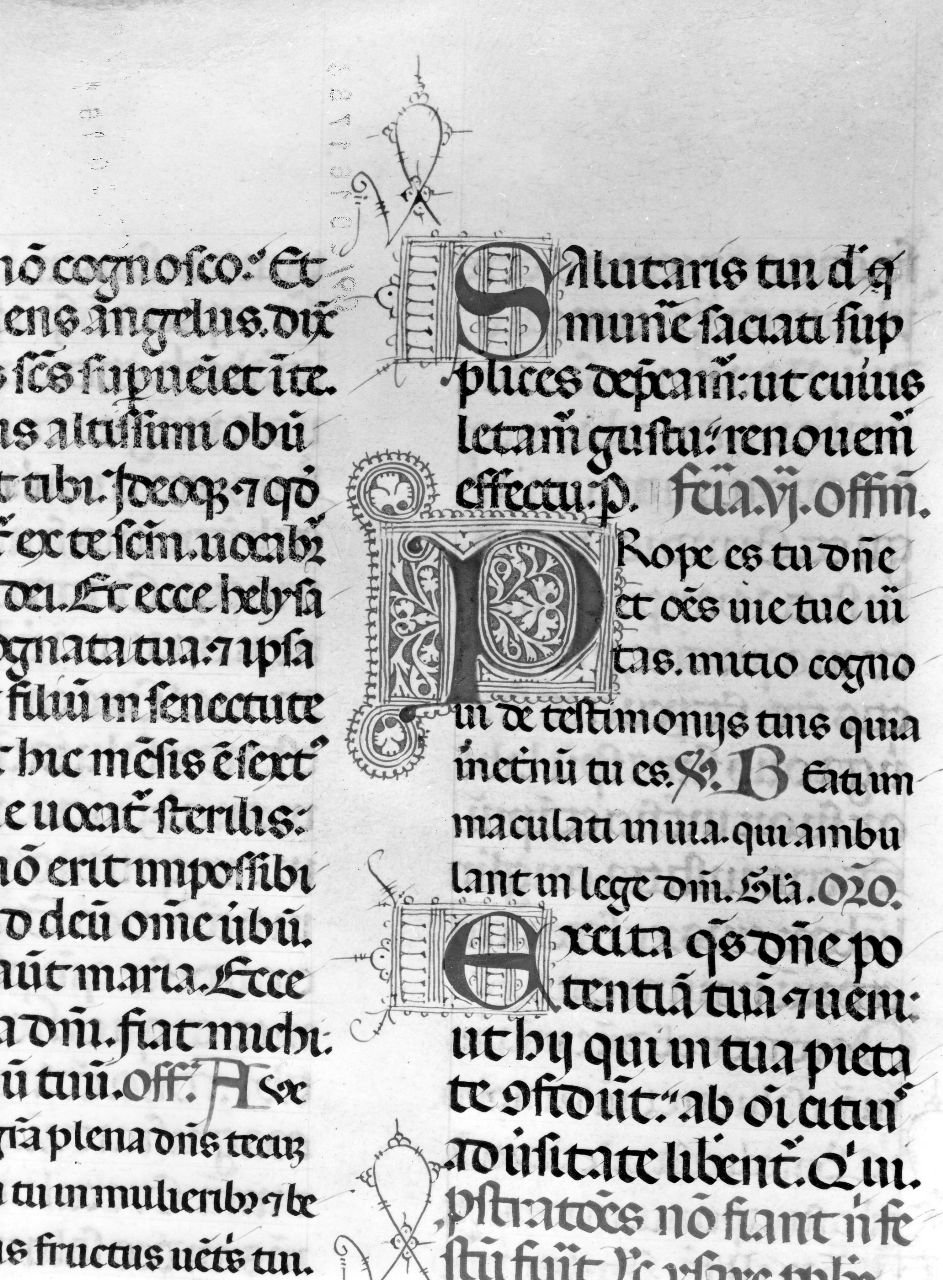 nō cognosco. Et
ens angelus. dix̄
sc̄s sup̄ueīet ī te.
altissimi obū
tibi. Ideoqꝫ ⁊ qd̄
ex te scm̄. uocabr̄
dei. Et ecce helysa
ognata tua. ⁊ ipsa
filiū in senectute
hic mēsis ē sext᷒
e uocat̄ sterilis:
nō erit impossibi
deū om̄e ūbū.
aūt maria. Ecce
a dn̄i. fiat michi:
ū tuū. off̄. Aue
gr̄a plena dn̄s tecuꝫ
tu in mulieribꝫ ⁊ be
us fructus uēt̄s tui.
Salutaris tui d̄s q̄
mun̄e saciati sup
plices dep̄cam̄: ut cuius
letam̄ gustu: renouem̄
effectu. p̄. Fer̄ia. VI. offm̄.
PRope es tu dn̄e
et oēs uie tue uī
tas. initio cogno
ui de testimonijs tuis quia
in et̄nū tu es. V̄. Beati im
maculati in uia. qui ambu
lant in lege dn̄i. Gl̄a. OR̄O.
Excita q̄s dn̄e po
tentiā tuā ⁊ ueni:
ut hij qui in tua pieta
te ꝯfidūt: ab oī citiu᷒
aduīsitate libent̄. Q̄ui.
Pstratōēs nō fiant ī fe